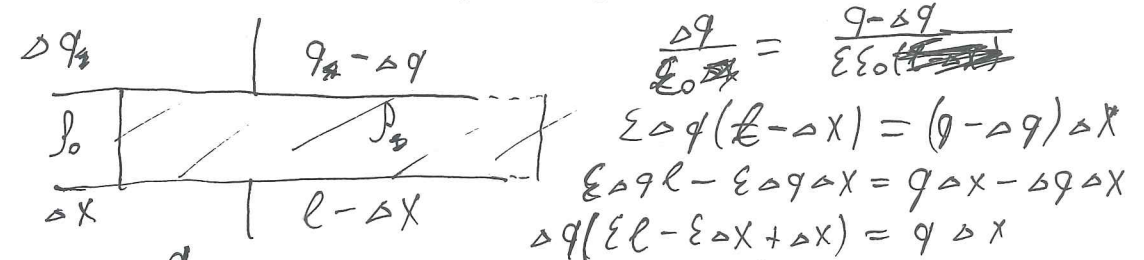 Δq
q - Δq
ρ₀
ρ
Δx
l - Δx
q
Δq/ε₀ = (q - Δq)/(εε₀)
εΔq(l - Δx) = (q - Δq)Δx
εΔql - εΔqΔx = qΔx - ΔqΔx
Δq(εl - εΔx + Δx) = qΔx